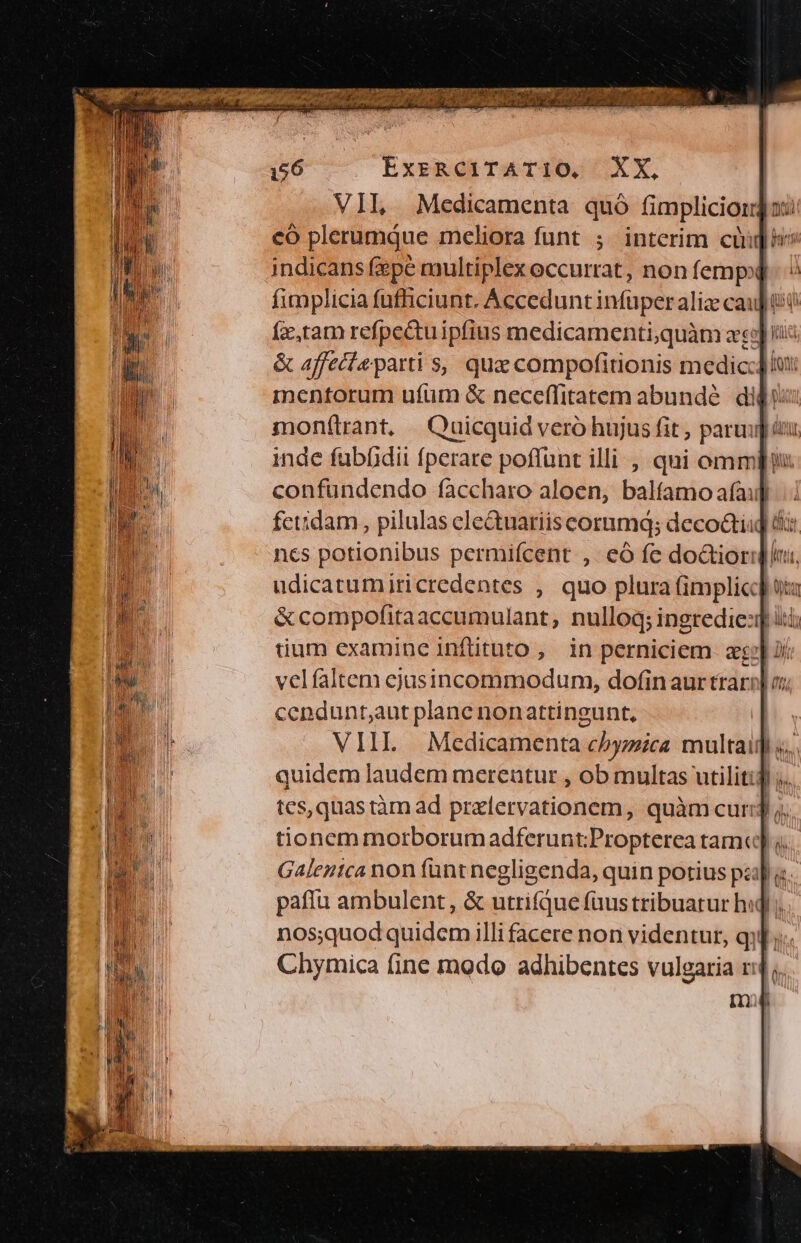 156 EXERCITATIO, XX,
VII, Medicamenta quò ſimplicior
eò plerumq́ue meliora ſunt ; interim cùm
indicans ſæpè multiplex occurrat, non ſemp
ſimplicia ſufficiunt. Accedunt inſuper aliæ cau
ſæ,tam reſpectu ipſius medicamenti,quàm æg
& affectæ parti s, quæ compoſitionis medic
mentorum uſum & neceſſitatem abundè di
monſtrant, Quicquid verò hujus ſit, parum
inde ſubſidii ſperare poſſunt illi , qui omm
confundendo ſaccharo aloen, balſamo aſa
fetidam, pilulas electuariis eorumq́; decocti
nes potionibus permiſcent , eò ſe doctior
udicatum iri credentes , quo plura ſimplic
& compoſita accumulant, nulloq́; ingredie
tium examine inſtituto , in perniciem æg
vel ſaltem ejus incommodum, doſin aut tran
cendunt,aut plane non attingunt,
VIII. Medicamenta chymica multam
quidem laudem merentur , ob multas utilit
tes,quas tàm ad præſervationem, quàm cur
tionem morborum adferunt:Propterea tam
Galenica non ſunt negligenda, quin potius pa
paſſu ambulent, & utriſq́ue ſuus tribuatur h
nos;quod quidem illi facere non videntur, q
Chymica ſine modo adhibentes vulgaria r